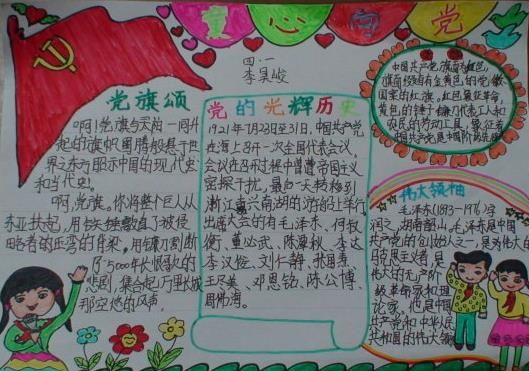 童心向党
四·一
李昊峻
党旗颂
啊!党旗与天始一同升
起的旗帜图腾般悬于世
界之东方昭示中国的现代史
和当代史。
啊,党旗。你将整个巨人从
东亚扶起,用
略者的
5000年
悲剧,集合起万里长城
那空
党的光辉历史
1921年7月23日至31日,中国共产党
在海上召开一次全国代表会议,
会议在召开过程中曾遭帝国主义
密探干扰。最后一天转移到
浙江嘉兴南湖的游船上举行
出席大会的有毛泽东、何叔
衡、董必武、陈潭秋、李达
李汉俊、刘仁静、
王尽美、邓恩铭、陈公博、
周佛海。
中国共产党旗面为红色,
旗面缀有金黄色的党徽
图案的红旗。红色象征革命,
黄色的锤子镰刀代表工人和
农民的劳动工具,象征着
中国共产党是中国
伟大领袖
毛泽东(1893—1976)字
润之,湖南韶山,毛泽东是中国
共产党的创始人之一,是为伟大的
马克思主义者,是
伟大的无产阶
级革命家和
论家,他是中国
共产党和中华人民
共和国的伟大领